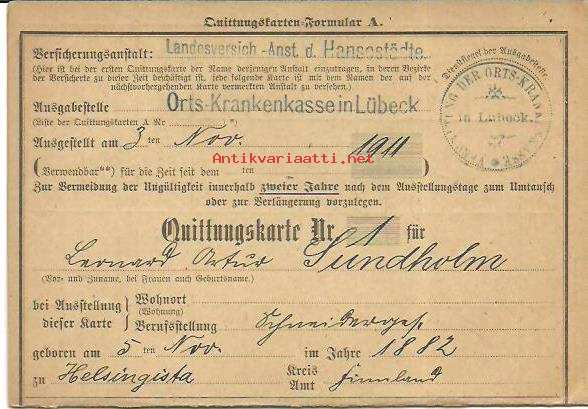 Quittungskarten-Formular A.
Versicherungsanstalt: Landesversich.-Anst. d. Hansestädte.
(Hier ist bei der ersten Quittungskarte der Name derjenigen Anstalt einzutragen, in deren Bezirke
der Versicherte zu dieser Zeit beschäftigt ist, jede folgende Karte ist mit dem Namen der auf der
nächstvorhergehenden Karte vermerkten Anstalt zu versehen.)
Dienstsiegel der Ausgabestelle.
Ausgabestelle Orts-Krankenkasse in Lübeck
(Liste der Quittungskarten A Nr.
DER ORTS-KRANKENKASSE
in Lübeck.
Ausgestellt am 3 ten Nov. 1911
Antikvariaatti.net
(Verwendbar**) für die Zeit seit dem ten
Zur Vermeidung der Ungültigkeit innerhalb zweier Jahre nach dem Ausstellungstage zum Umtausch
oder zur Verlängerung vorzulegen.
Quittungskarte Nr. 1 für
Leonard Artur Sundholm
(Vor- und Zuname, bei Frauen auch Geburtsname).
bei Ausstellung dieser Karte } Wohnort
(Wohnung)
Berufsstellung Schneiderges.
geboren am 5 ten Nov. im Jahre 1882
zu Helsingista Kreis Amt Finnland